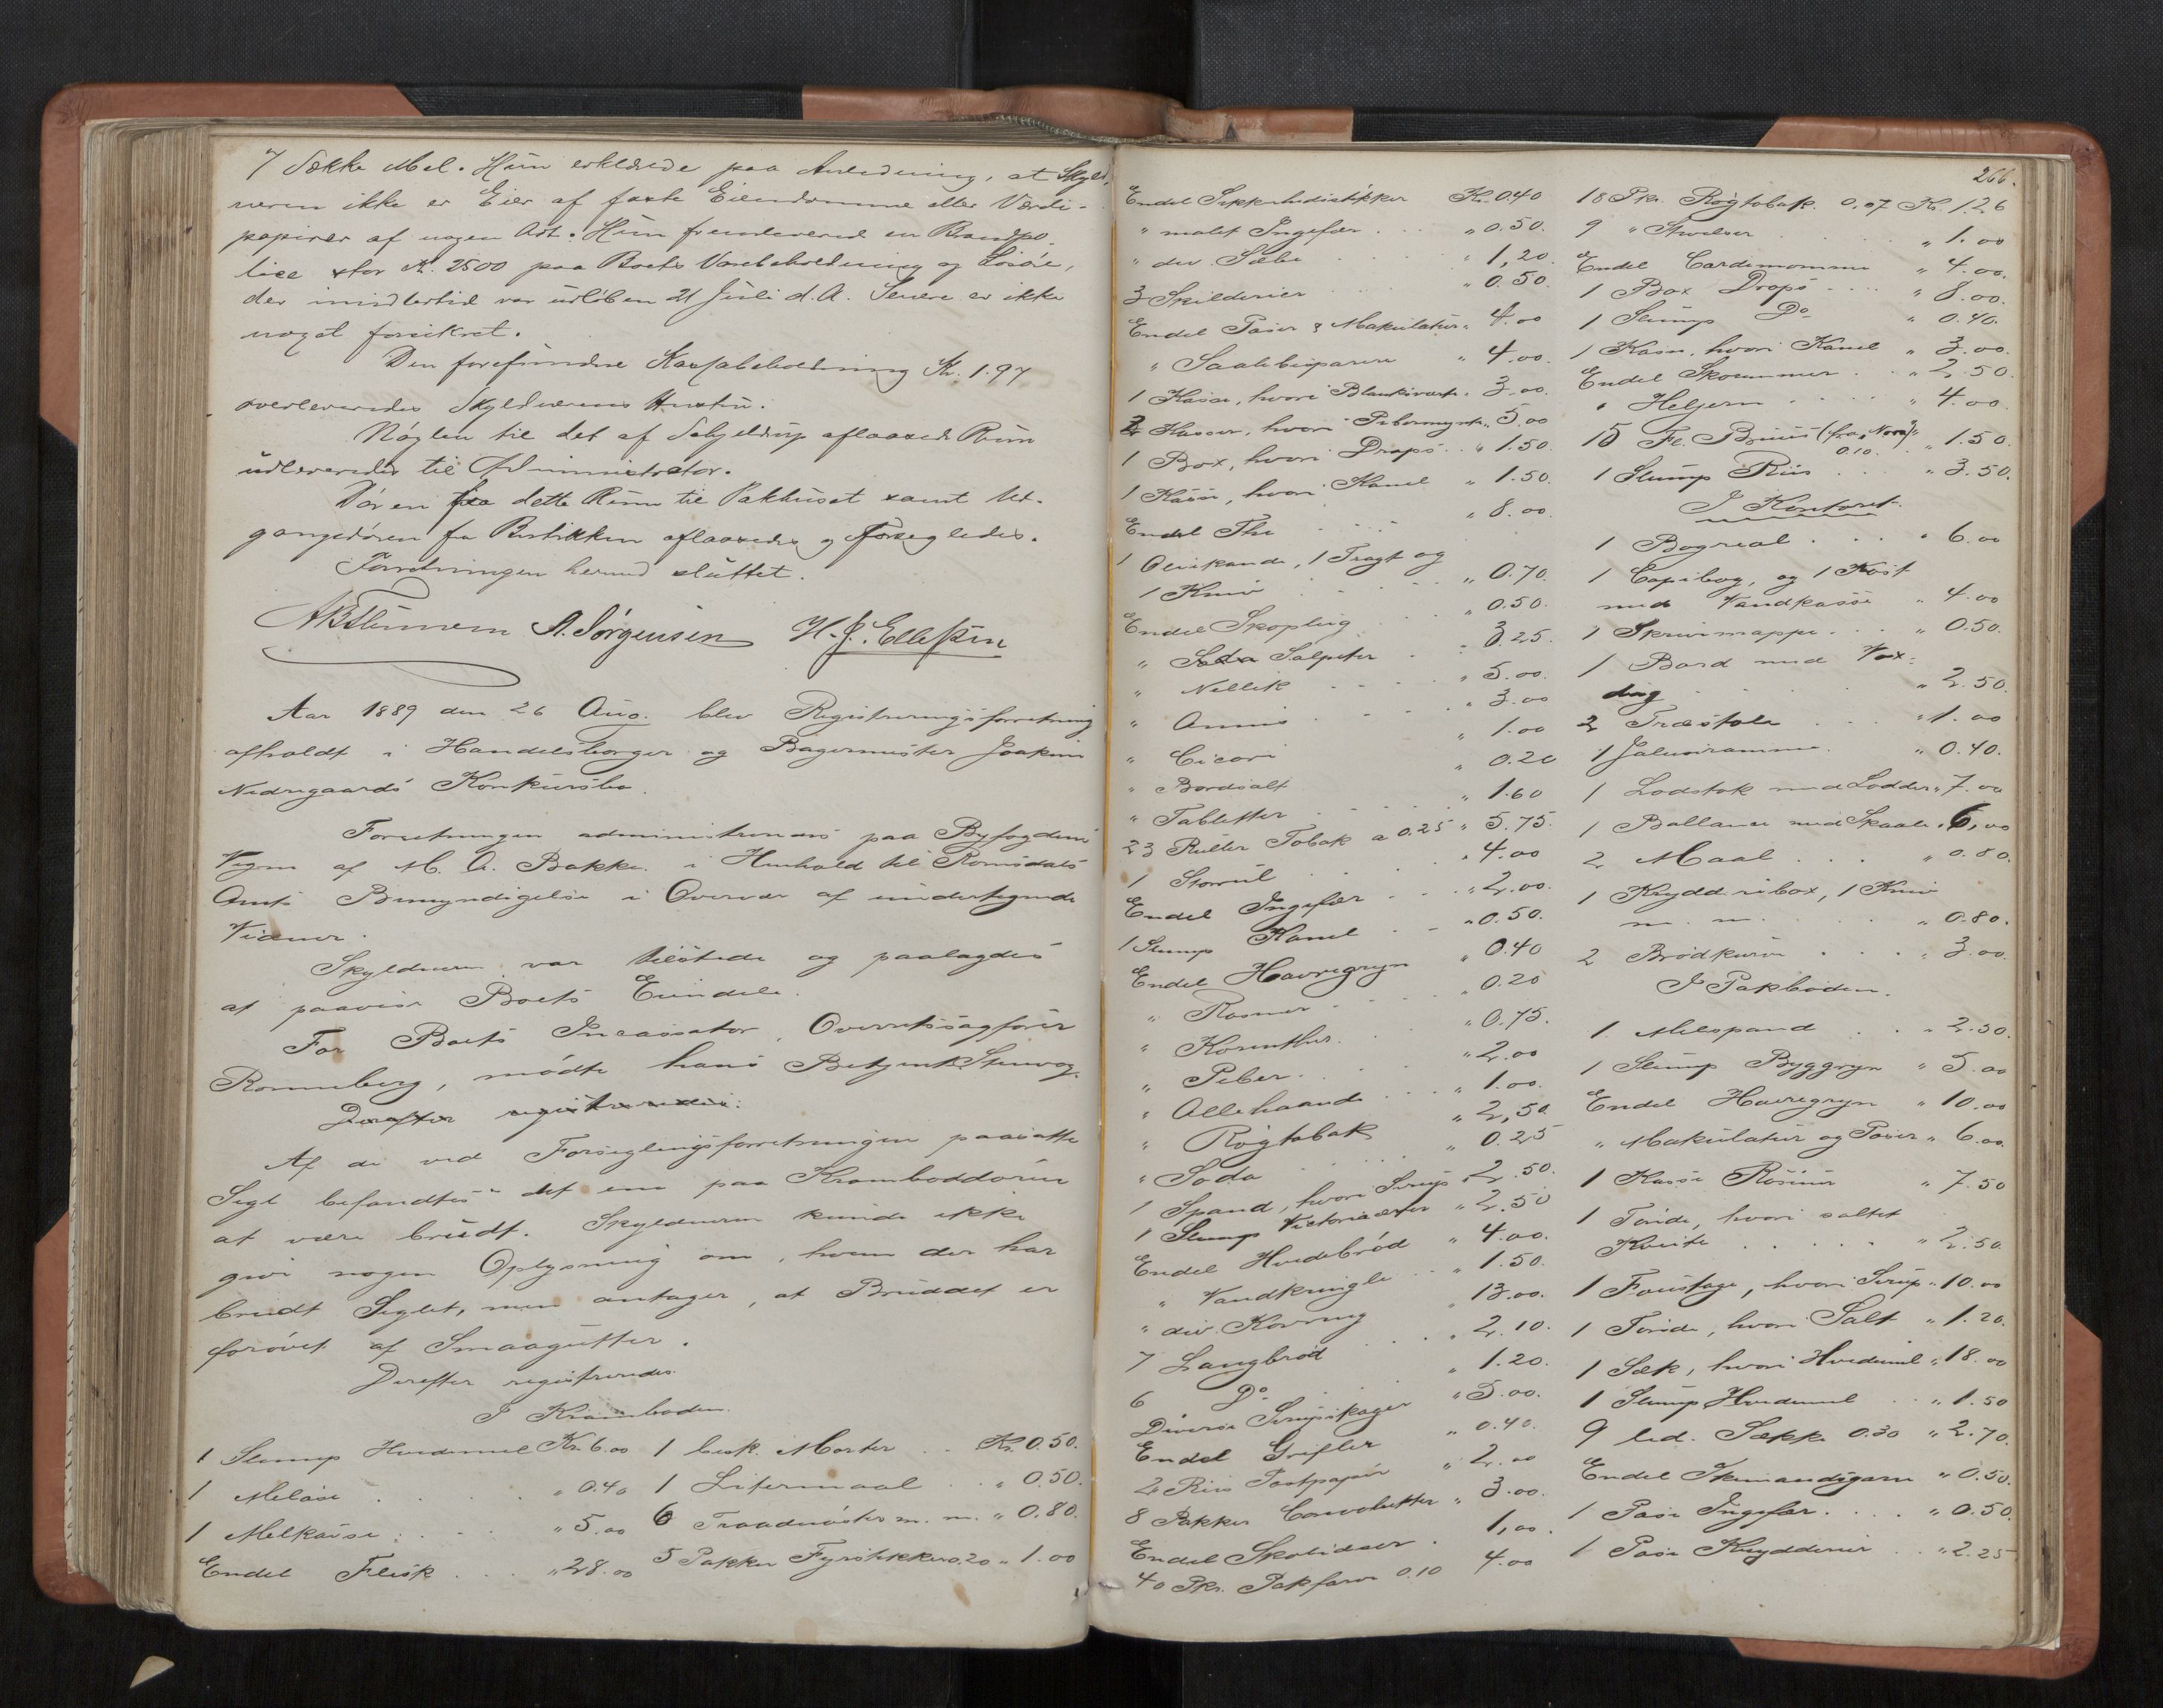 7 Sække Mel. Hun erklærede paa Anledning, at Skyld-
neren ikke er Eier af faste Eiendomme eller Værdi-
papirer af nogen Art. Hun fremleverede en Brandpo-
lice stor Kr. 2500 paa Boets Varebeholdning og Løsøre,
der imidlertid var udløben 21 Juli d. A. Senere er ikke
noget forsikret.
Den forefundne Kassabeholdning Kr. 1.97
overleveredes Skyldnerens Hustru.
Nøglen til det af Schjeldrup aflaasede Rum
udleveredes til Administrator.
Døren fra dette Rum til Pakhuset samt Ud-
gangsdøren fra Butikken aflaasedes og forsegledes.
Forretningen hermed sluttet.
A. Sørgensen H. J. Ellefsen
Aar 1889 den 26 Aug. blev Registreringsforretning
afholdt i Handelsborger og Bagermester Joakim
Nedregaards Konkursbo.
Forretningen administreres paa Byfogdens
Vegne af M. A. Bakke i Henhold til Romsdals
Amts Bemyndigelse i Overvær af undertegnede
Vidner.
Skyldneren var tilstede og paalagdes
at paavise Boets Eiendele.
For Boets Incassator, Overretssagfører
Ronneberg, mødte hans Betjent Stenvog.
Derefter registreredes:
Af de ved Forseglingsforretningen paasatte
Segl befandtes det ene paa Kramboddøren
at være brudt. Skyldneren kunde ikke
give nogen Oplysning om, hvem der har
brudt Seglet, men antager, at Bruddet er
forøvet af Smaagutter.
Derefter registreredes
I Kramboden.
1 Slump Hvedemel Kr. 6.00
1 Meløse . . . " 0.40
1 Melkasse . . . " 5.00
Endel Flesk . . . " 28.00
1 besk. Morter . . Kr. 0.50.
1 Litermaal . . " 0.50.
6 Traadnøster m. m. " 0.80.
5 Pakker Fyrstikker 0.20 " 1.00
266.
Endel Sikkerhedsstikker Kr. 0.40
" malet Ingefær . . . " 0.50.
" div. Sæbe . . . " 1,20.
3 Skilderier . . . " 0.50.
Endel Poser & Makulatur " 4.00
" Saalebesparere " 4.00.
1 Kasse, hvori Blanksværte " 3.00.
2 Kasser, hvori Pebermynte " 5.00
1 Box, hvori Drops . . " 1.50.
1 Kasse, hvori Kanel " 1.50.
Endel The . . . " 8.00.
1 Oliekande, 1 Tragt og
1 Kniv . . . " 0.70.
Endel Skoplug . . . " 0.50.
" Salpeter . . " 3.25.
" Nellik . . . " 5.00.
" Annis . . . " 3.00
" Cicori " 1.00
" Bordsalt " 0.20
" Tabletter . . . " 1.60
23 Ruller Tobak a 0.25 " 5.75.
1 . . . " 4.00
Endel Ingefær . . " 2.00.
1 Slump Kanel . . " 0.50.
Endel Havregryn " 0.40
" Rosiner . . . " 0.20
" Korenther. . . " 0.75.
" Peber . . . " 2.00
" Allehaande . . . " 1.00.
" Røgtobak " 2,50.
" Soda . . . " 0.25
1 Spand, hvori Sirup " 2.50.
1 Slump Victoriaærter " 2.50
Endel Hvedebrød " 4.00.
" Vandkringle . . " 1.50.
" div. Kavring " 13.00.
7 Langbrød . . . " 2.10.
6 Do . . . " 1.20.
Diverse Sirupskager " 5.00.
Endel Grifler " 0.40.
2 Riis Postpapir " 2.00
8 Pakker Convolutter " 3.00.
Endel Skolidser . 1,00.
40 Pkr. Pakfarve 0.10 4.00
18 Pkr. Røgtobak. 0.07 Kr. 1.26
9 " Stivelse . . . " 1.00
Endel Cardemomme " 4.00.
1 Box Drops . . . " 8.00.
1 Slump Do " 0.40.
1 Kasse, hvori Kanel " 3.00.
Endel Skoremmer . . " 2.50.
" Heljern . . . " 4.00.
15 Fl. Bruus (fra Nora) 0.10. " 1.50.
1 Slump Riis . . . " 3.50.
I Kontoret.
1 Bogreal . . . " 6.00
1 Copibog, og 1 Kost
med Vandkasse " 4.00
1 Skrivmappe . . . " 0.50.
1 Bord med Vox-
dug . . . " 2.50.
2 Træstole . . . " 1.00
1 Jalousiramme. " 0.40.
1 Lodstok med Lodder " 7.00
1 Ballance med Skaale " 6,00
2 Maal . . . " 0.80.
1 Krydderibox, 1 Kniv
m. m. . . . " 0.80.
2 Brødkurve . . . " 3.00.
I Pakboden.
1 Melspand . . " 2.50.
1 Slump Byggryn " 5.00
Endel Havregryn " 10.00
" Makulatur og Poser " 6.00.
1 Kasse Rosiner " 7.50
1 Tønde, hvori saltet
Kveite . . . " 2.50.
1 Foustage, hvori Sirup " 10.00
1 Tønde, hvori Salt " 1.20.
1 Sæk, hvori Hvedemel " 18.00
1 Slump Hvedemel . . " 1.50
9 led. Sække 0.30 " 2.70.
Endel Skimandsgarn " 0.50.
1 Pose Ingefær . . . " 0.50.
1 Pose Krydderier . . " 2.25